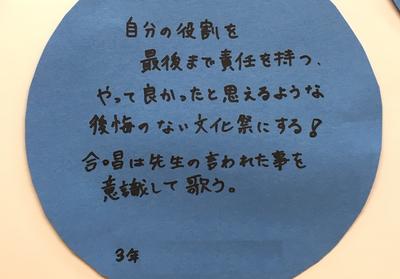 自分の役割を
最後まで責任を持つ、
やって良かったと思えるような
後悔のない文化祭にする！
合唱は先生の言われた事を
意識して歌う。
3年